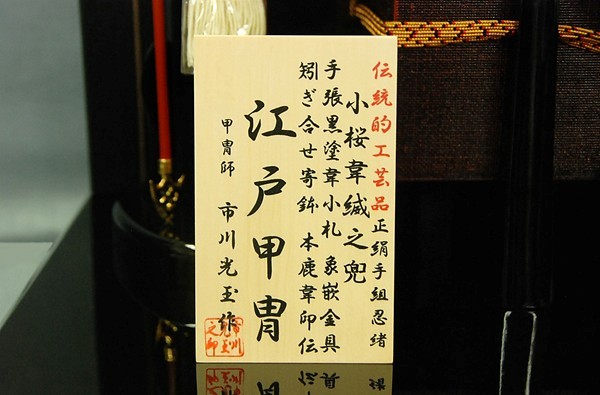 伝統的工芸品 正絹手組忍緒
小桜韋縅之兜
手張黒塗韋小札 象嵌金具
矧ぎ合せ寄鉢 本鹿韋印伝
江戸甲冑
甲冑師 市川光玉作
市川光玉之印